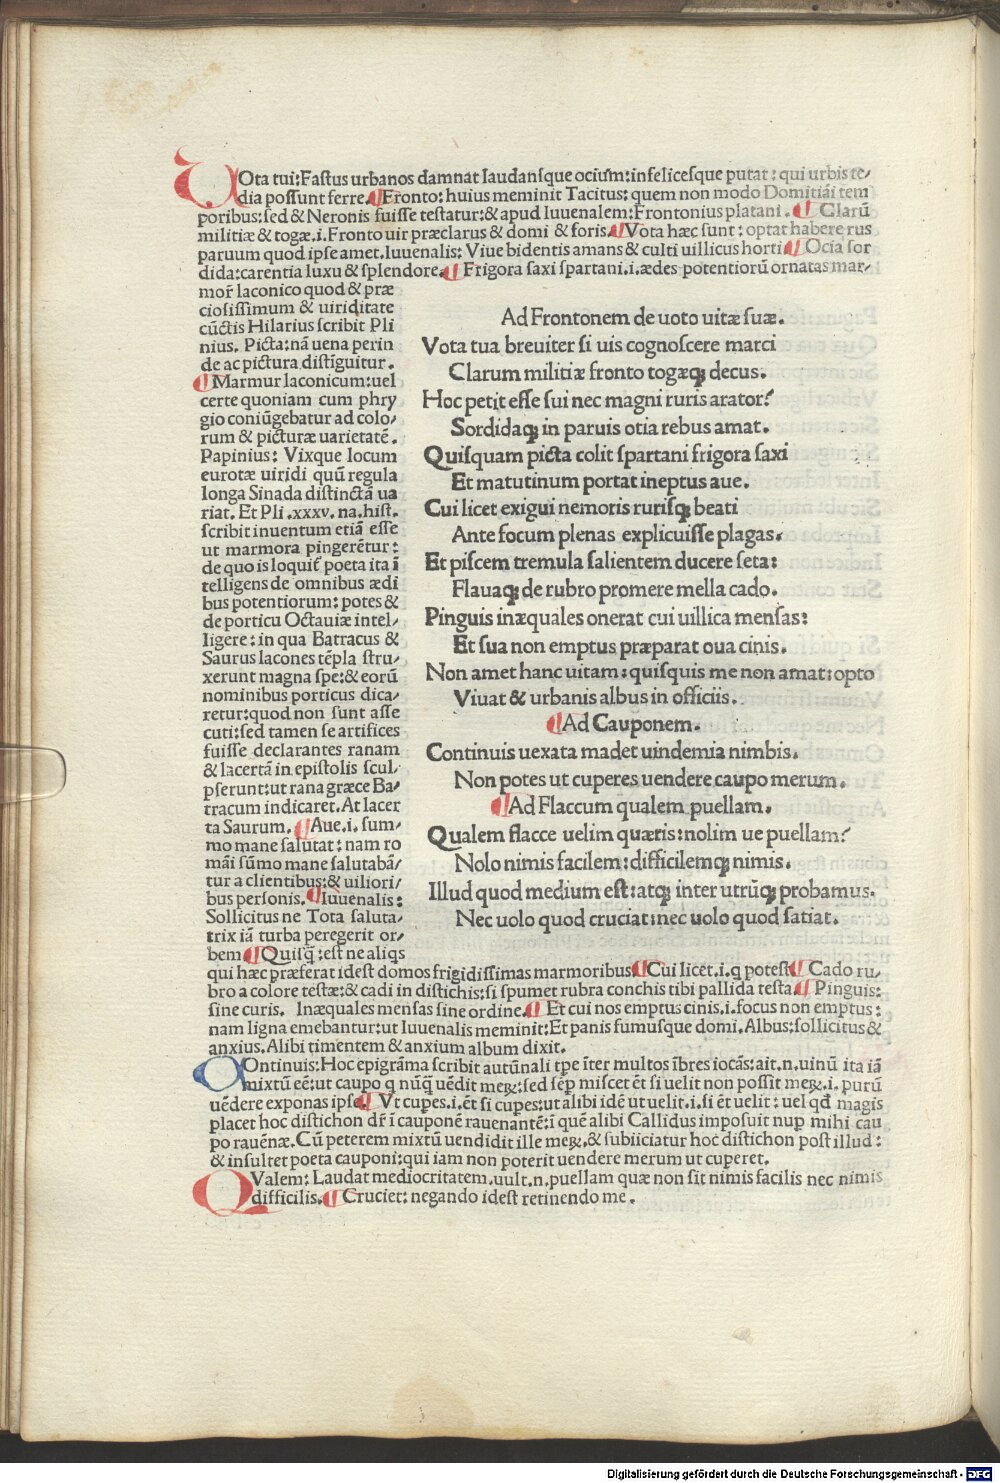 VOta tui:Fastus urbanos damnat laudansque ocium:infelicesque putat: qui urbis te-
dia possunt ferre.¶Fronto: huius meminit Tacitus: quem non modo Domitiãi tem
poribus:sed & Neronis fuisse testatur:& apud Iuuenalem:Frontonius platani.¶Clarũ
militiæ & togæ.i.Fronto uir præclarus & domi & foris.¶Vota hæc sunt: optat habere rus
paruum quod ipse amet.Iuuenalis: Viue bidentis amans & culti uillicus horti¶Ocia sor
dida:carentia luxu & splendore.¶Frigora saxi spartani.i.ædes potentiorũ ornatas mar-
mor̃ laconico quod & præ
ciosissimum & uiriditate
cũctis Hilarius scribit Pli
nius. Picta: nã uena perin
de ac pictura distiguitur.
¶Marmur laconicum:uel
certe quoniam cum phry
gio coniũgebatur ad colo-
rum & picturæ uarietatẽ.
Papinius: Vixque locum
eurotæ uiridi quũ regula
longa Sinada distinctã ua
riat. Et Pli.xxxv.na.hist.
scribit inuentum etiã esse
ut marmora pingerẽtur:
de quo is loquit̃ poeta ita ĩ
telligens de omnibus ædi
bus potentiorum: potes &
de porticu Octauiæ intel-
ligere: in qua Batracus &
Saurus lacones tẽpla stru-
xerunt magna spe:& eorũ
nominibus porticus dica-
retur:quod non sunt asse
cuti:sed tamen se artifices
fuisse declarantes ranam
& lacertã in epistolis scul
pserunt:ut rana græce Ba-
tracum indicaret.At lacer
ta Saurum.¶Aue.i.sum-
mo mane salutat: nam ro
mãi sũmo mane salutabã-
tur a clientibus:& uiliori-
bus personis.¶Iuuenalis:
Sollicitus ne Tota saluta-
trix iã turba peregerit or-
bem¶Quisq̃:est ne aliqs
Ad Frontonem de uoto uitæ suæ.
Vota tua breuiter si uis cognoscere marci
Clarum militiæ fronto togæqꝫ decus.
Hoc petit esse sui nec magni ruris arator?
Sordidaqꝫ in paruis otia rebus amat.
Quisquam picta colit spartani frigora saxi
Et matutinum portat ineptus aue.
Cui licet exigui nemoris rurisqꝫ beati
Ante focum plenas explicuisse plagas.
Et piscem tremula salientem ducere seta:
Flauaqꝫ de rubro promere mella cado.
Pinguis inæquales onerat cui uillica mensas:
Et sua non emptus præparat oua cinis.
Non amet hanc uitam: quisquis me non amat: opto
Viuat & urbanis albus in officiis.
¶Ad Cauponem.
Continuis uexata madet uindemia nimbis.
Non potes ut cuperes uendere caupo merum.
¶Ad Flaccum qualem puellam.
Qualem flacce uelim quæris:nolim ue puellam?
Nolo nimis facilem:difficilemqꝫ nimis.
Illud quod medium est:atqꝫ inter utrũqꝫ probamus.
Nec uolo quod cruciat:nec uolo quod satiat.
qui hæc præferat idest domos frigidissimas marmoribus¶Cui licet.i.q potest¶Cado ru-
bro a colore testæ:& cadi in distichis:si spumet rubra conchis tibi pallida testa.¶Pinguis:
sine curis. Inæquales mensas sine ordine.¶Et cui nos emptus cinis.i.focus non emptus:
nam ligna emebantur:ut Iuuenalis meminit:Et panis fumusque domi.Albus:sollicitus &
anxius.Alibi timentem & anxium album dixit.
COntinuis:Hoc epigrãma scribit autũnali tpe ĩter multos ĩbres iocãs:ait.n.uinũ ita iã
mixtũ eẽ:ut caupo q nũq̃ uẽdit meꝝ:sed sẽp miscet ẽt si uelit non possit meꝝ.i.purũ
uẽdere exponas ipse¶Vt cupes.i.ẽt si cupes:ut alibi idẽ ut uelit.i.si ẽt uelit: uel qđ magis
placet hoc distichon dr̃ ĩ cauponẽ rauenantẽ:ĩ quẽ alibi Callidus imposuit nup mihi cau
po rauẽnæ.Cũ peterem mixtũ uendidit ille meꝝ.& subiiciatur hoc distichon post illud:
& insultet poeta cauponi:qui iam non poterit uendere merum ut cuperet.
QValem: Laudat mediocritatem.uult.n.puellam quæ non sit nimis facilis nec nimis
difficilis.¶Cruciet: negando idest retinendo me.
Digitalisierung gefördert durch die Deutsche Forschungsgemeinschaft - DFG